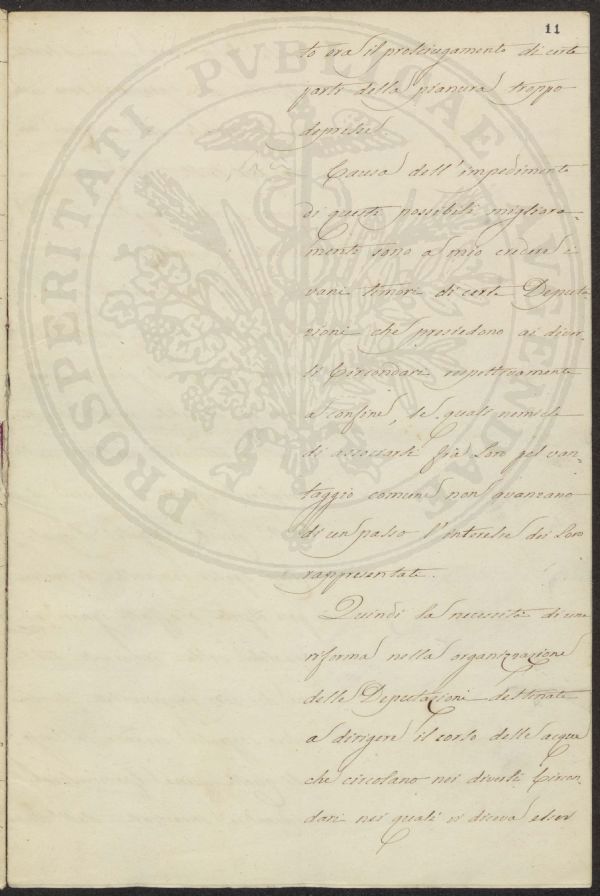 11
to era il prosciugamento di certe
parti della pianura troppo
depresse.
Causa dell'impedimento
di questi possibili migliora=
menti sono a mio credere i
vani timori di certe Deputa
zioni che presiedono ai diver=
si Circondari respettivamente
a confine, le quali nemiche
di associarsi frà Loro pel van=
taggio comune non avanzano
di un passo l'interesse dei Loro
rappresentati.
Quindi la necessità di una
riforma nella organizzazione
delle Deputazioni destinate
a dirigere il corso delle acque
che circolano nei diversi Circon=
dari nei quali si diceva esser
PROSPERITATI PVBLICAE AVGENDAE